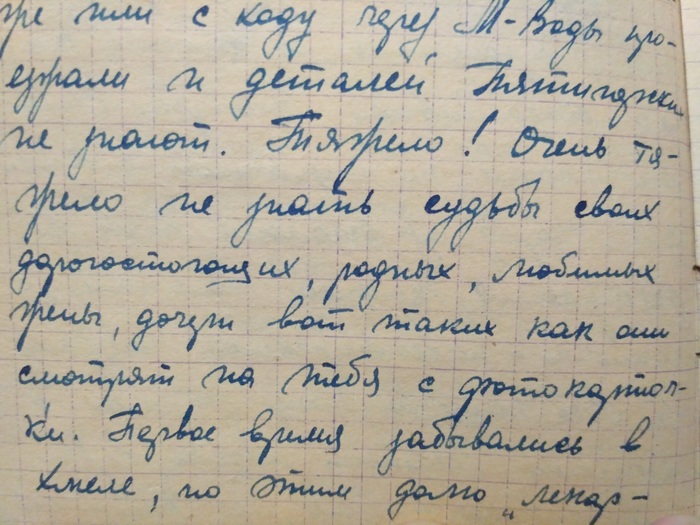 же или с ходу через М-Воды про-
езжали и деталей Пятигорска
не знают. Тяжело! Очень тя-
жело не знать судьбы своих
дорогостоющих, родных, любимых
жены, дочери вот таких как они
смотрят на тебя с фотокарточ-
ки. Первое время забывались в
хмеле, но этим долго „лекар-